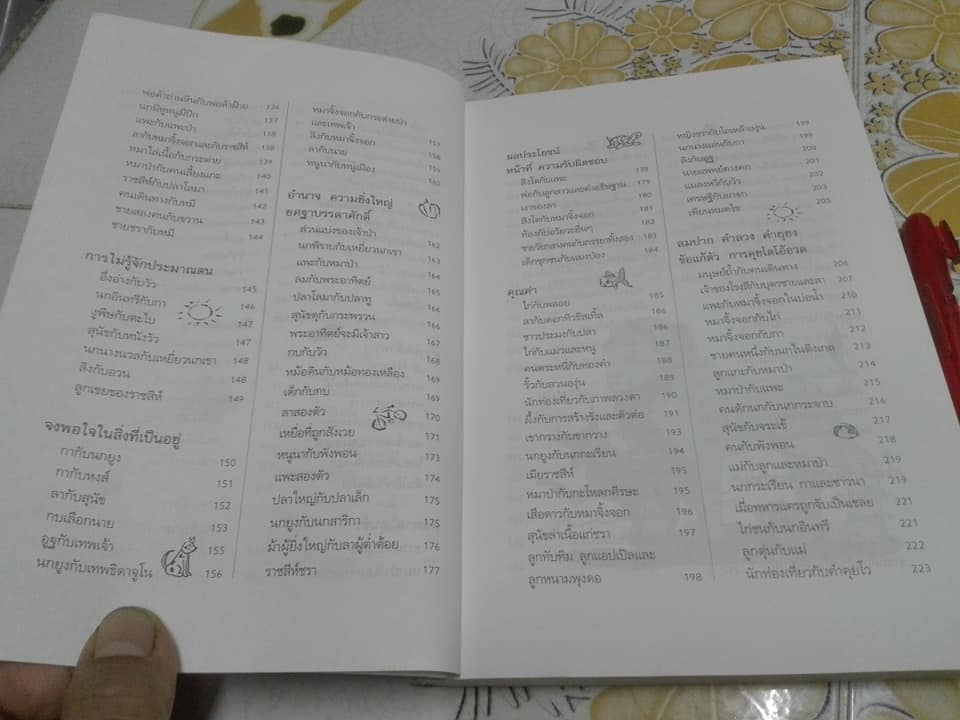 พ่อค้าถ่านหินกับพ่อค้าฝ้าย 136
นกมีหูหนูมีปีก 137
แพะกับแพะป่า 138
ลากับหมาจิ้งจอกและกับราชสีห์ 138
หมาไล่เนื้อกับกระต่าย 139
หมาป่ากับคนเลี้ยงแกะ 140
ราชสีห์กับปลาโลมา 141
คนเดินทางกับหมี 142
ชายสองคนกับขวาน 143
ชายชรากับหมี 144
การไม่รู้จักประมาณตน
อึ่งอ่างกับวัว 145
นกอินทรีกับกา 146
งูพิษกับตะไบ 147
สุนัขกับหนังวัว 147
นกนางนวลกับเหยี่ยวนกเขา 148
ลิงกับอวน 148
ลูกเขยของราชสีห์ 149
จงพอใจในสิ่งที่เป็นอยู่
กากับนกยูง 150
กากับหงส์ 151
ลากับสุนัข 152
กบเลือกนาย 153
อูฐกับเทพเจ้า 155
นกยูงกับเทพธิดาจูโน 156
หมาจิ้งจอกกับกระต่ายป่า
และเทพเจ้า 157
ลิงกับหมาจิ้งจอก 158
ลากับนาย 159
หนูนากับหนูเมือง 160
อำนาจ ความยิ่งใหญ่
ยศฐาบรรดาศักดิ์
ส่วนแบ่งของเจ้าป่า 162
นกพิราบกับเหยี่ยวนกเขา 163
แพะกับหมาป่า 164
ลมกับพระอาทิตย์ 165
ปลาโลมากับปลาทู 166
สุนัขดุกับกระพรวน 166
พระอาทิตย์จะมีเจ้าสาว 167
กบกับวัว 168
หม้อดินกับหม้อทองเหลือง 169
เด็กกับกบ 169
ลาสองตัว 170
เหยื่อที่ถูกสังเวย 171
หนูนากับพังพอน 173
แพะสองตัว 174
ปลาใหญ่กับปลาเล็ก 175
นกยูงกับนกสาริกา 175
ม้าผู้ยิ่งใหญ่กับลาผู้ต่ำต้อย 176
ราชสีห์ชรา 177
ผลประโยชน์
หน้าที่ ความรับผิดชอบ
สิงโตกับแพะ 178
พ่อกับลูกสาวและคำอธิษฐาน 179
เงาของลา 180
สิงโตกับหมาจิ้งจอก 181
ท้องกับอวัยวะอื่นๆ 182
ชายวัยกลางคนกับภรรยาทั้งสอง 183
เด็กซุกซนกับแมงป่อง 184
คุณค่า
ไก่กับพลอย 185
ลากับดอกทิวธิสเทิ้ล 186
ชาวประมงกับปลา 186
ไก่กับแมวและหนู 187
คนตระหนี่กับทองคำ 188
รั้วกับสวนองุ่น 189
นักท่องเที่ยวกับภาพลวงตา 190
ผึ้งกับการสร้างรังและตัวต่อ 191
เขากวางกับขากวาง 193
นกยูงกับนกกะเรียน 194
เมียราชสีห์ 195
หมาป่ากับกะโหลกศีรษะ 195
เสือดาวกับหมาจิ้งจอก 196
สุนัขล่าเนื้อแก่ชรา 197
ลูกทับทิม ลูกแอปเปิลและ
ลูกหนามพุงดอ 198
หญิงชรากับไหเหล้าองุ่น 199
นกนางแอ่นกับกา 199
ลิงกับอูฐ 200
นายแพทย์คางคก 201
แมลงหวี่กับวัว 202
เศรษฐีกับยาจก 203
เทียนหมดไข 205
ลมปาก คำลวง คำยุยง
ข้อแก้ตัว การคุยโตโอ้อวด
มนุษย์ถ้ำกับคนเดินทาง 206
เจ้าของโรงสีกับบุตรชายและลา 207
แพะกับหมาจิ้งจอกในบ่อน้ำ 210
หมาจิ้งจอกกับไก่ 211
หมาจิ้งจอกกับกา 212
ชายคนหนึ่งกับนาไนติงเกล 213
ลูกแกะกับหมาป่า 214
หมาป่ากับแพะ 215
คนดักนกกับนกกระจาบ 216
สุนัขกับจระเข้ 217
คนกับพังพอน 218
แม่กับลูกและหมาป่า 219
นกกระเรียน กาและชาวนา 219
เมื่อทหารแตรถูกจับเป็นเชลย 221
ไก่ชนกับนกอินทรี 221
ลูกตุ่นกับแม่ 222
นักท่องเที่ยวกับคำคุยโว 223